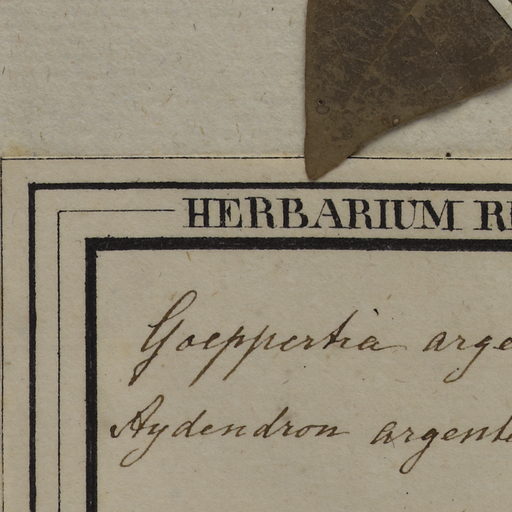 HERBARIUM R
Goeppertia arge
Aydendron argent